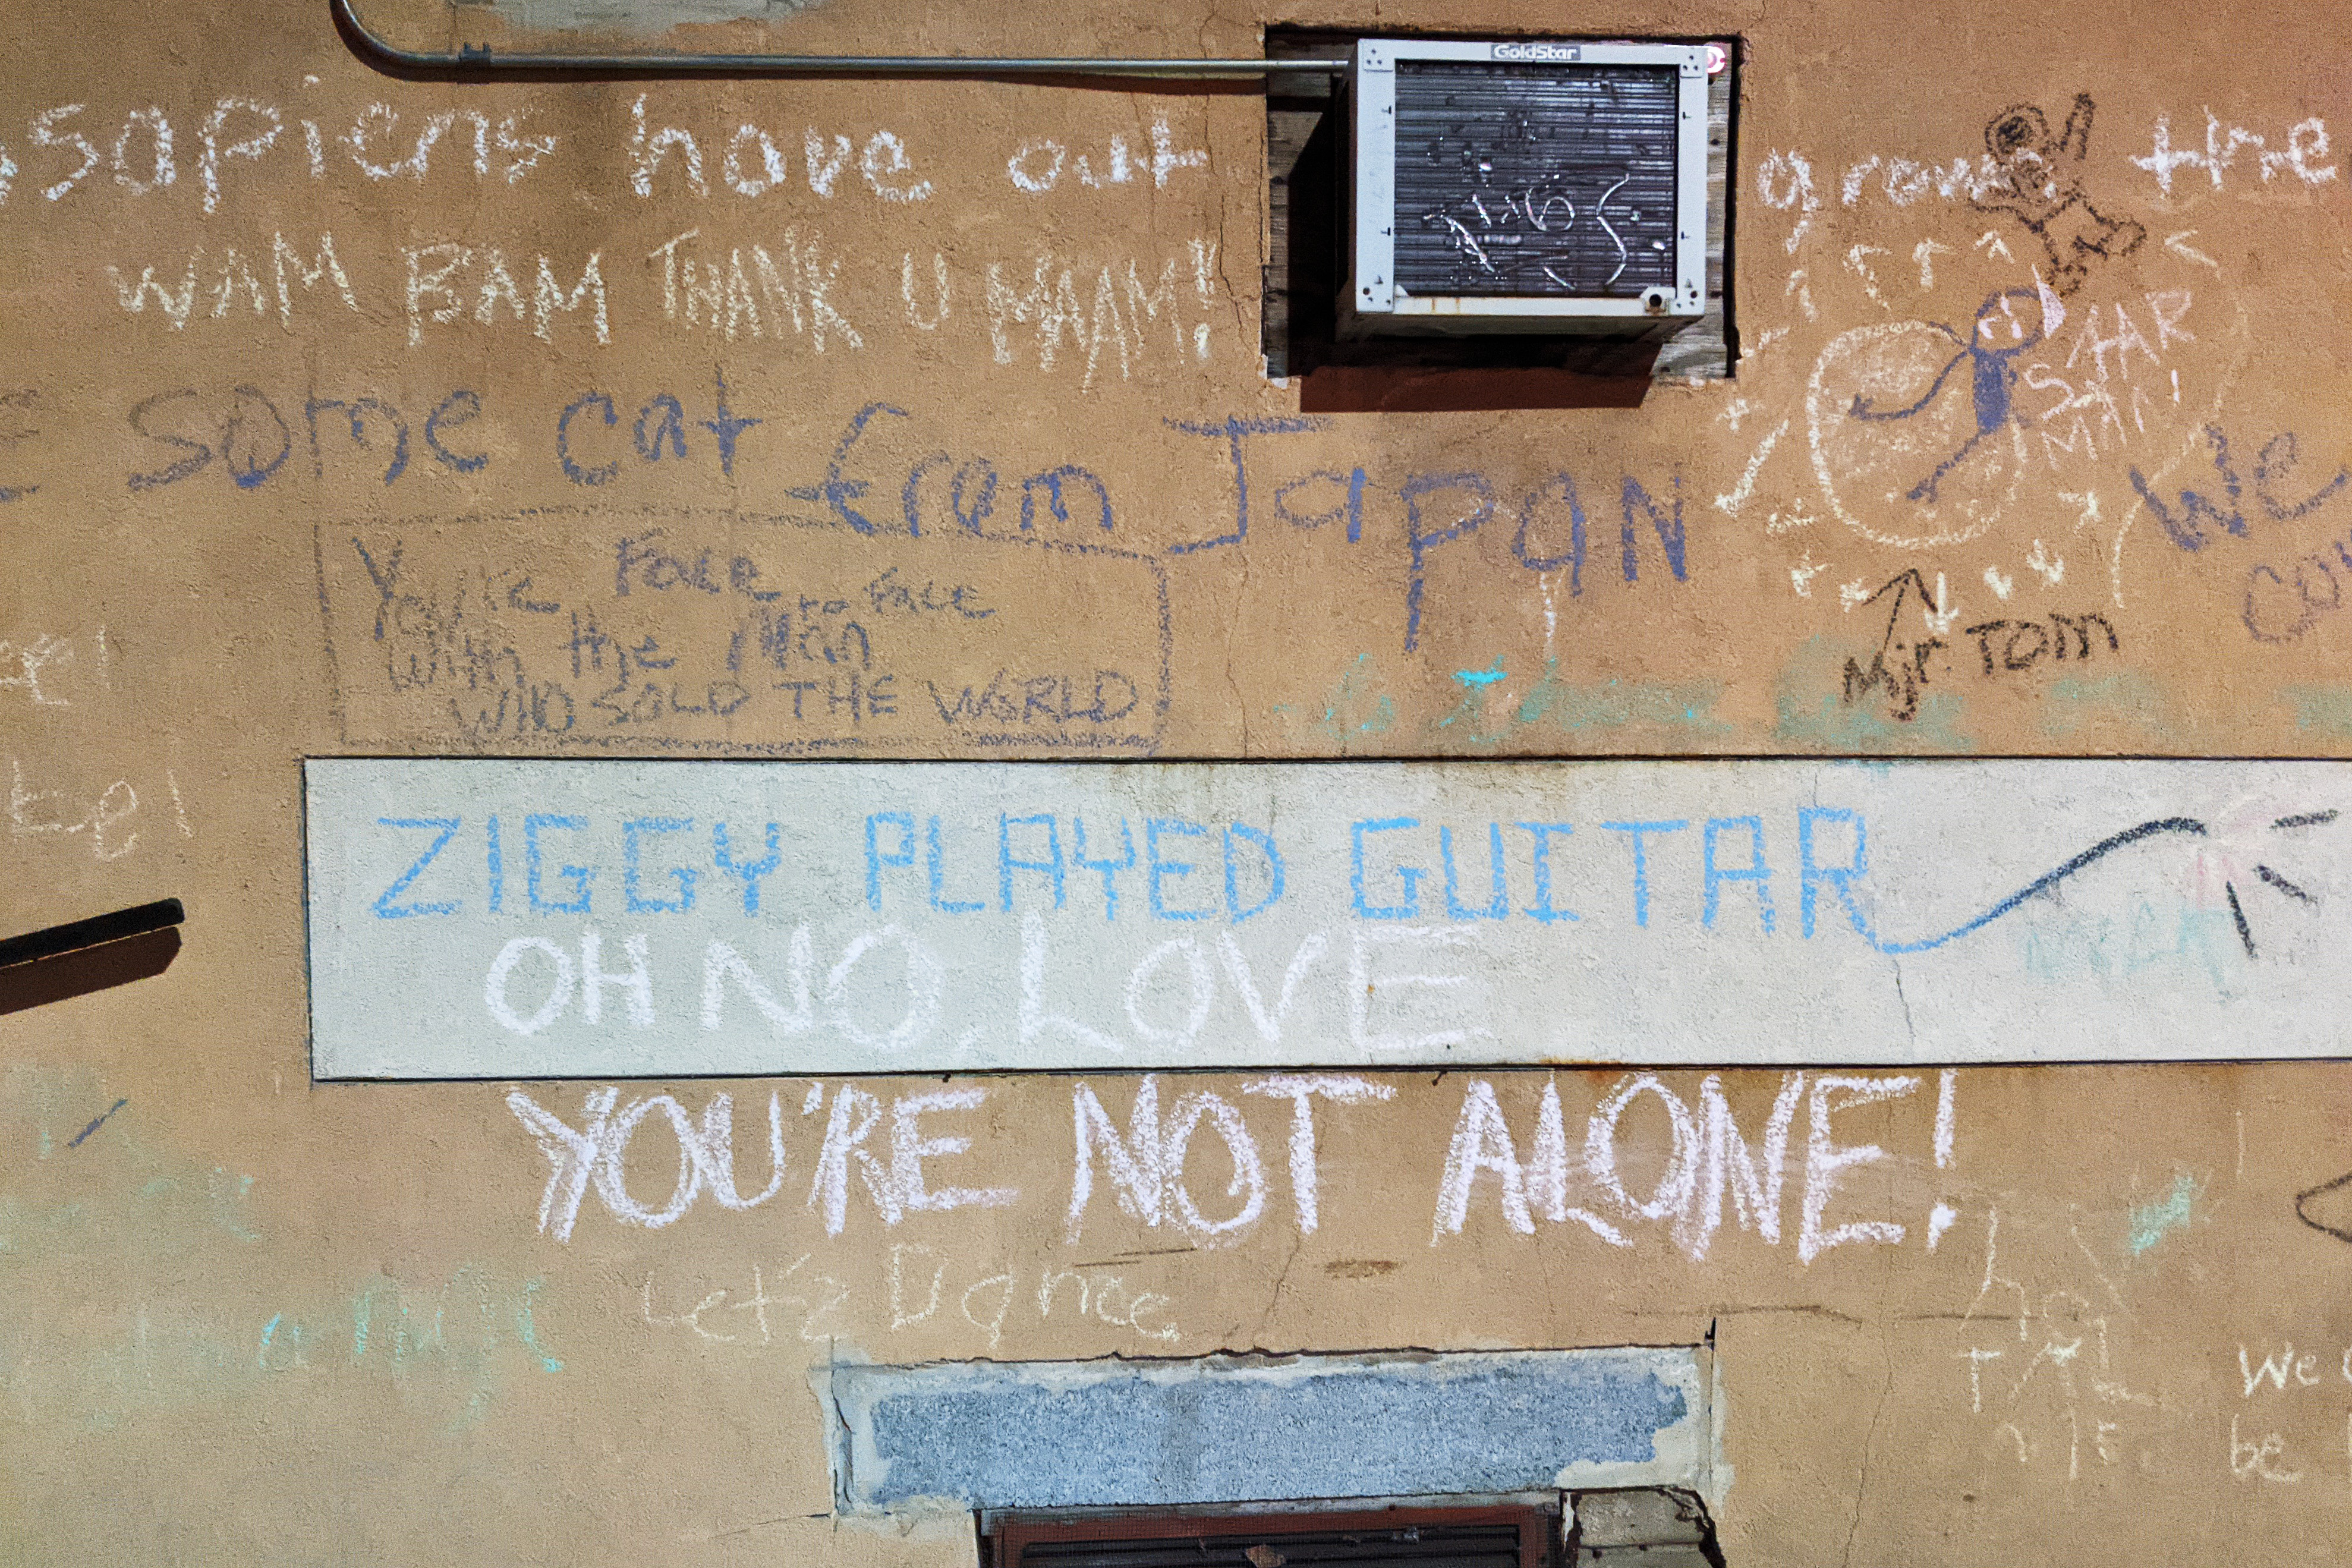 GoldStar
sapiens have out grown the
WAM BAM THANK U MAAM!
some cat from JaPaN
STAR
MAN!
We
You're Face to Face
With the Man
WHO SOLD THE WORLD
Mjr. TOM
ZIGGY PLAYED GUITAR
OH NO, LOVE
YOU'RE NOT ALONE!
Let's Dance
We
be